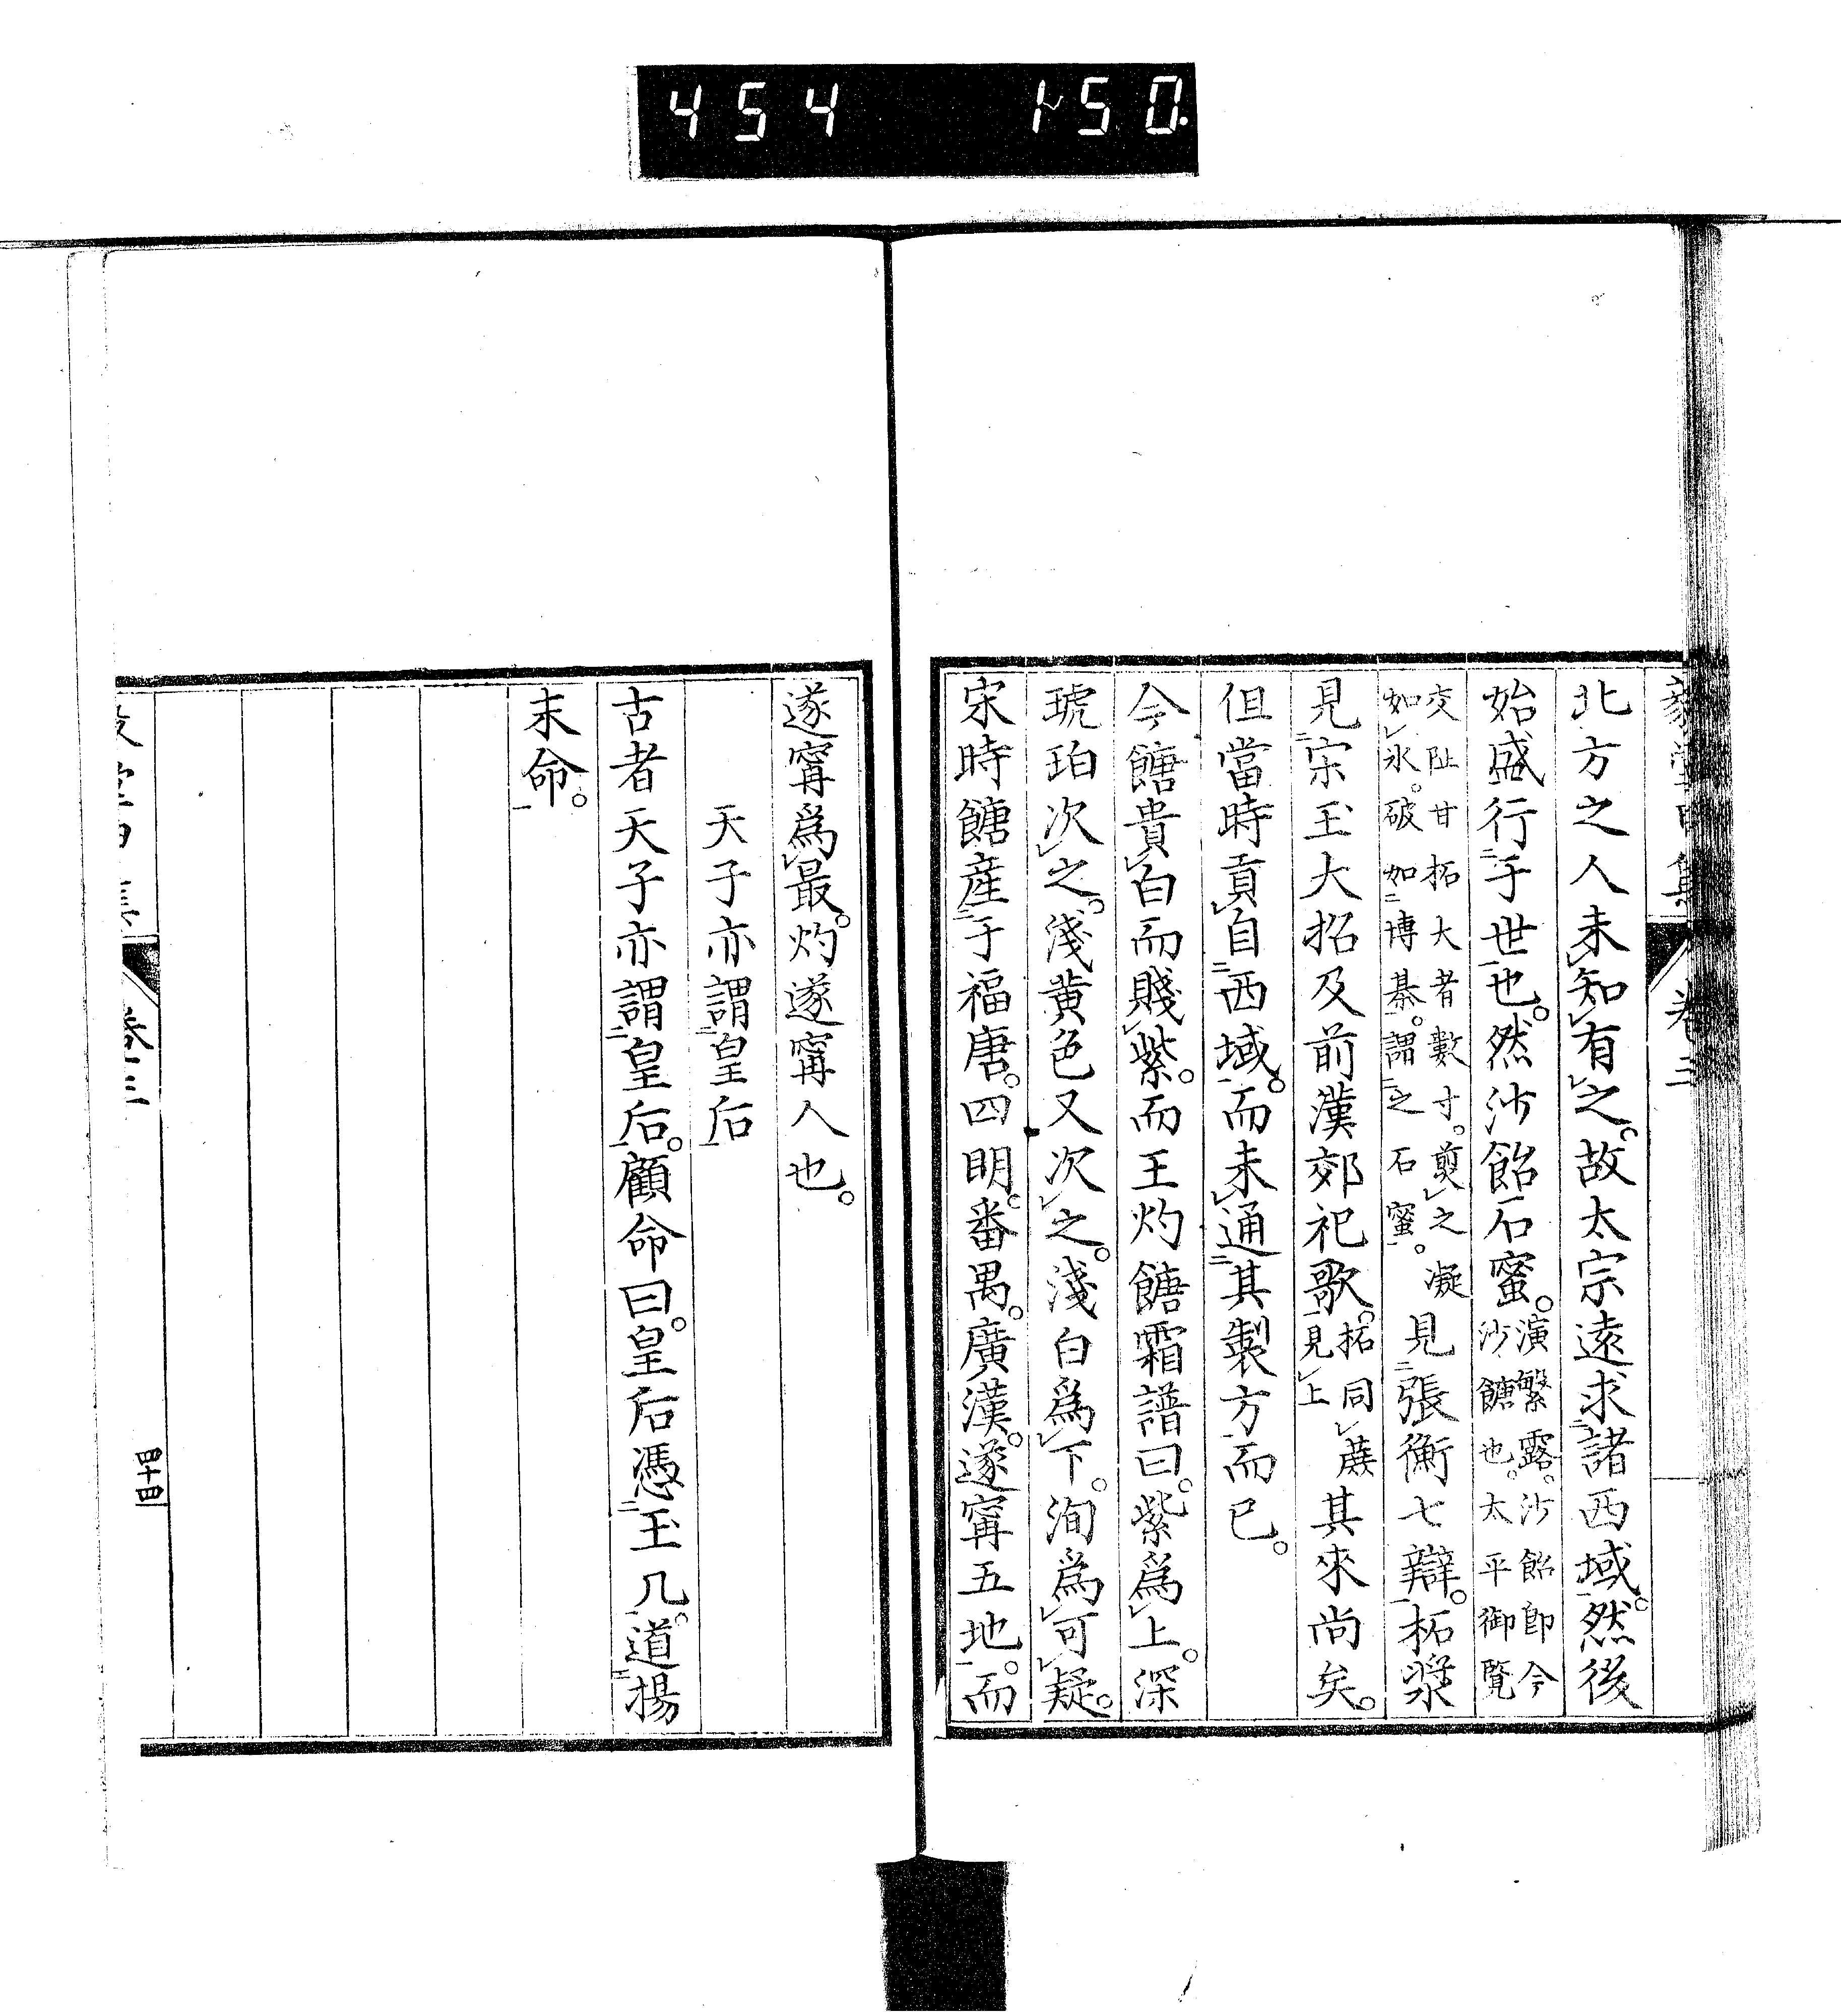 454 150
北方之人未知有之。故太宗遠求諸西域。然後
始盛行于世也。然沙飴石蜜。演繁露。沙飴即今沙餹也。太平御覽
交趾甘柘大者數寸。煎之凝如氷。破如博棊。謂之石蜜。見張衡七辯。柘漿
見宋玉大招及前漢郊祀歌。柘同蔗見上其來尚矣。
但當時貢自西域。而未通其製方而已。
今餹貴白而賤紫。而王灼餹霜譜曰。紫爲上。深
琥珀次之。淺黄色又次之。淺白爲下。洵爲可疑。
宋時餹産于福唐。四明。番禺。廣漢。遂寗五地。而
遂寗爲最。灼遂寗人也。
天子亦謂皇后
古者天子亦謂皇后。顧命曰。皇后憑玉几。道揚
末命。
卷三
四十四